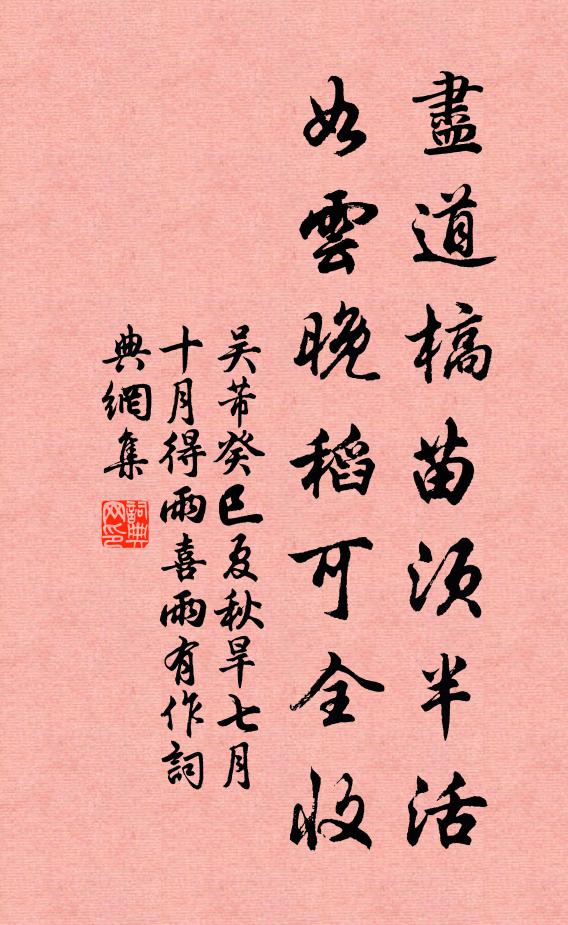 盡道槁苗須半活
如雲晚稻可全收
吴芾癸巳夏秋旱七月
十月得雨喜雨有作詞
典網集
詞典网印